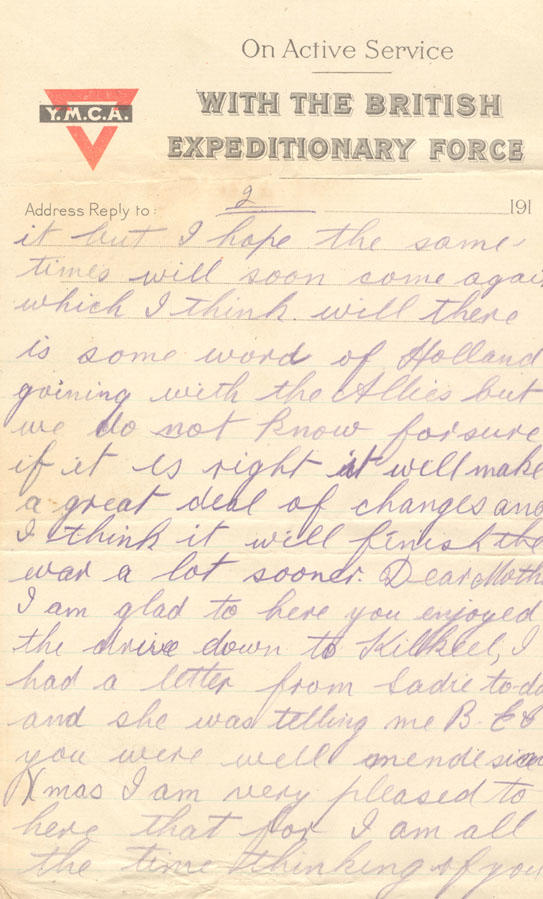 On Active Service
WITH THE BRITISH
Y.M.C.A.
EXPEDITIONARY FORCE
Address Reply to: 2 191
it but I hope the same
times will soon come again
which I think will there
is some word of Holland
goining with the Allies but
we do not know forsure
if it is right it will make
a great deal of changes and
I think it will finish the
war a lot sooner. Dear Moth
I am glad to here you enjoyed
the drive down to Kilkeel, I
had a letter from Sadie to-da
and she was telling me B. E &
you were well mende
Xmas I am very pleased to
here that for I am all
the time thinking of you